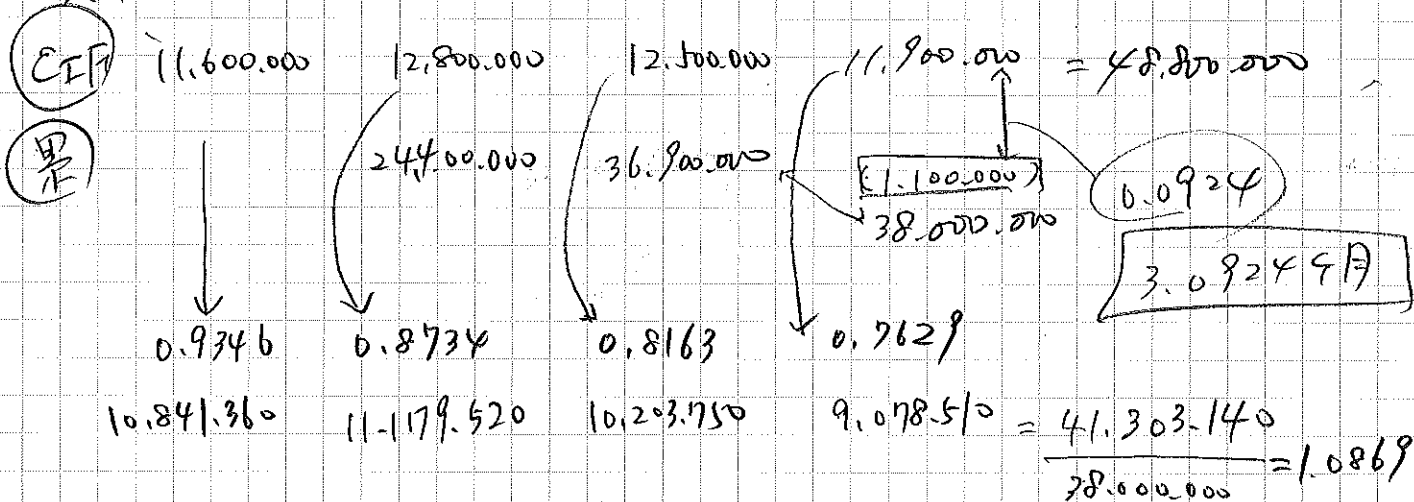 CIF 11,600.000 12,800.000 12.500.000 11,900.000 = 48.800.000
累 24,400.000 36.900.000 (1.100.000) 0.0924
38.000.000
3.0924ケ月
0.9346 0.8734 0.8163 0.7629
10.841.360 11.179.520 10,203.750 9.078.510 = 41.303.140 = 1.0869
38.000.000